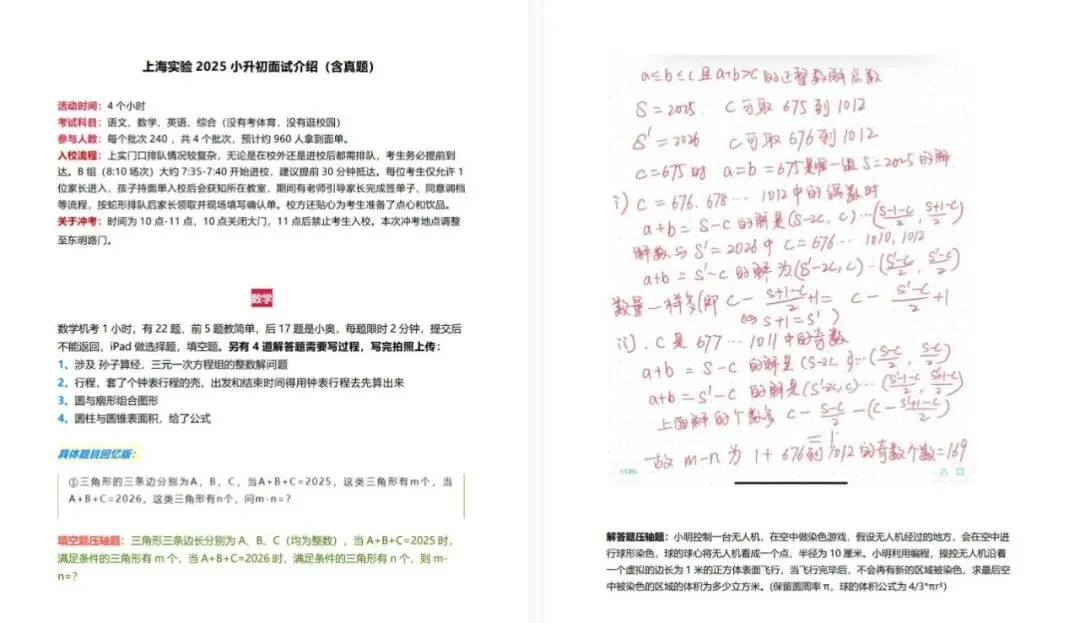 上海实验 2025 小升初面试介绍（含真题）
活动时间：4 个小时
考试科目：语文、数学、英语、综合（没有考体育，没有逛校园）
参与人数：每个批次 240 ，共 4 个批次，预计约 960 人拿到面单。
入校流程：上实门口排队情况较复杂，无论是在校外还是进校后都需排队，考生务必提前到
达。B 组（8:10 场次）大约 7:35-7:40 开始进校，建议提前 30 分钟抵达。每位考生仅允许 1
位家长进入，孩子持面单入校后会获知所在教室，期间有老师引导家长完成签单子、同意调档
等流程，按蛇形排队后家长领取并现场填写确认单。校方还贴心为考生准备了点心和饮品。
关于冲考：时间为 10 点-11 点，10 点关闭大门，11 点后禁止考生入校。本次冲考地点调整
至东明路门。
数学
数学机考 1 小时，有 22 题，前 5 题教简单，后 17 题是小奥，每题限时 2 分钟，提交后
不能返回，iPad 做选择题，填空题。另有 4 道解答题需要写过程，写完拍照上传：
1、涉及 孙子算经，三元一次方程组的整数解问题
2、行程，套了个钟表行程的壳，出发和结束时间得用钟表行程去先算出来
3、圆与扇形组合图形
4、圆柱与圆锥表面积，给了公式
具体题目回忆版：
①三角形的三条边分别为A，B，C，当A+B+C=2025，这类三角形有m个，当
A+B+C=2026，这类三角形有n个，问m-n=？
填空题压轴题：三角形三条边长分别为 A、B、C（均为整数），当 A+B+C=2025 时，
满足条件的三角形有 m 个，当 A+B+C=2026 时，满足条件的三角形有 n 个，则 m-
n=?
a≤b≤c 且 a+b>c 的正整数解个数
S=2025. c 可取 675 到 1012
S'=2026 c 可取 676 到 1012
c=675 时 a=b=675 是唯一组 S=2025 的解
i) c=676. 678… 1012 中的偶数时
a+b=S-c 的解是 (S-2c, c)…(S-1-c/2, S+1-c/2)
解数与 S'=2026 中 c=676… 1010, 1012
a+b=S'-c 的解为 (S'-2c, c)…(S'-c/2, S'-c/2)
数量一样多(即 c-S+1-c/2+1= c-S'-c/2+1
⇔ S+1=S')
ii). c 是 677… 1011 中的奇数
a+b=S-c 的解是 (S-2c, c)…(S-c/2, S-c/2)
a+b=S'-c 的解是 (S'-2c, c)…(S'-1-c/2, S'+1-c/2)
上面解的个数多 c-S-c/2-(c-S'+1-c/2)
=1
故 m-n 为 1+676到1012的奇数个数=169
解答题压轴题：小明控制一台无人机，在空中做染色游戏，假设无人机经过的地方，会在空中进
行球形染色，球的球心将无人机看成一个点，半径为 10 厘米。小明利用编程，操控无人机沿着
一个虚拟的边长为 1 米的正方体表面飞行，当飞行完毕后，不会再有新的区域被染色，求最后空
中被染色的区域的体积为多少立方米。(保留圆周率 π，球的体积公式为 4/3*πr³)